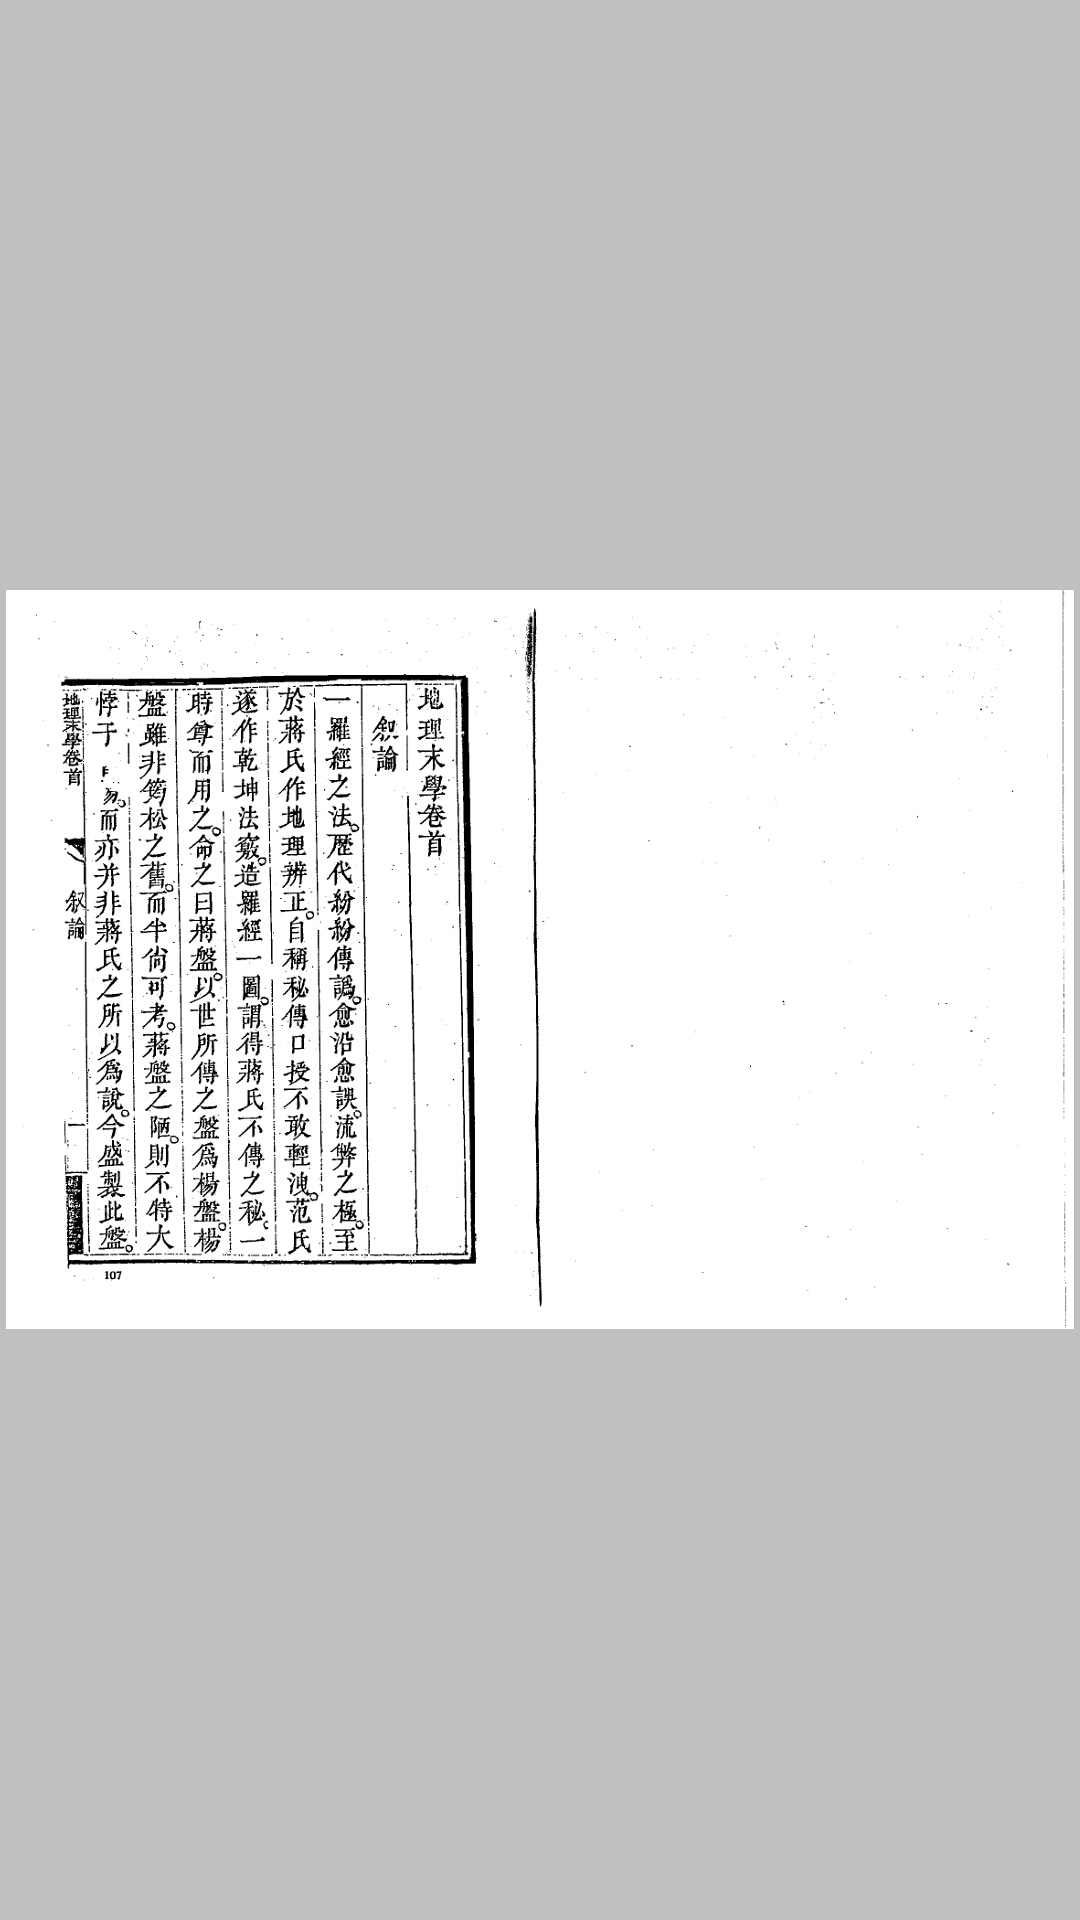 地理末學卷首
叙論
一羅經之法。歷代紛紛傳譌。愈沿愈誤。流弊之極。至
於蔣氏作地理辨正。自稱秘傳口授不敢輕洩。范氏
遂作乾坤法竅。造羅經一圖。謂得蔣氏不傳之秘。一
時尊而用之。命之曰蔣盤。以世所傳之盤爲楊盤。楊
盤雖非筠松之舊。而半尙可考。蔣盤之陋。則不特大
悖于 。而亦并非蔣氏之所以爲說。今盛製此盤。
地理末學卷首
叙論
一
107